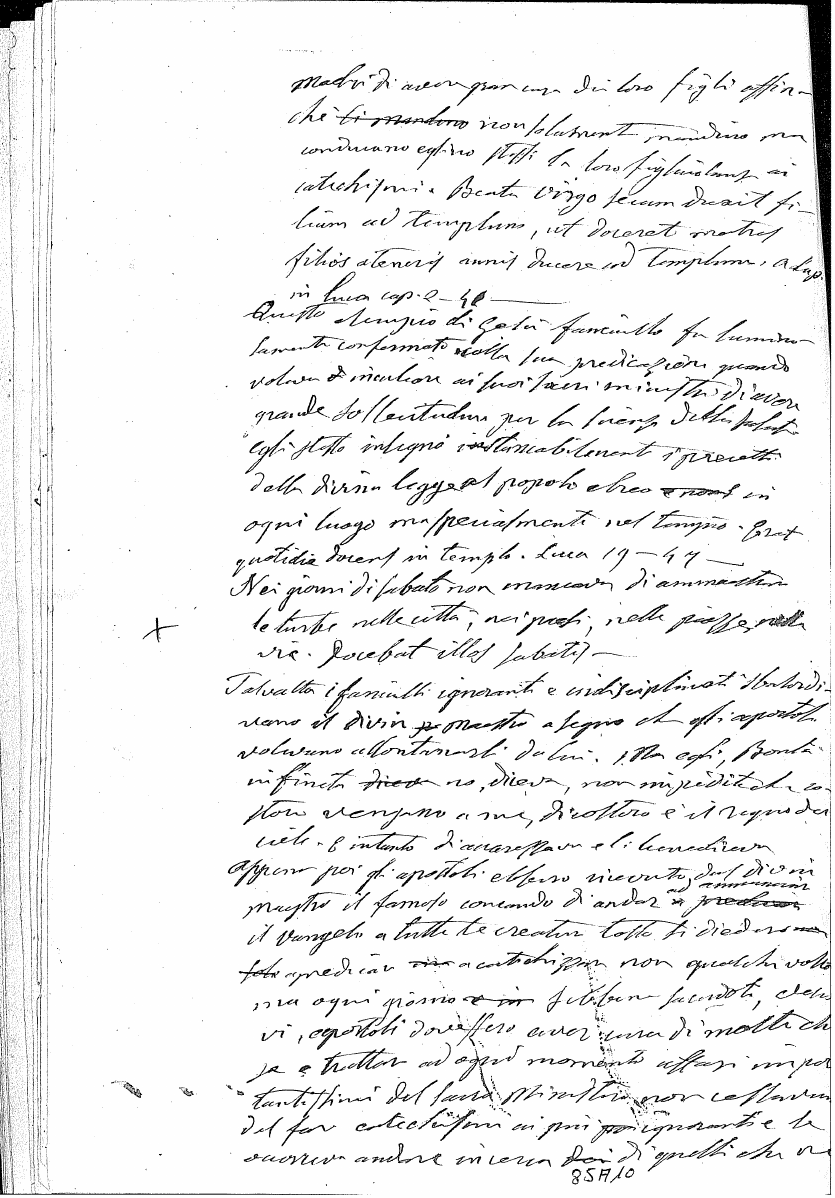 madri di aver gran cura dei loro figli affin-
chè li mandino non solamente mandino ma
conducano eglino stessi la loro figliuolanza ai
catechismi. Beata Virgo secum duxit fi-
lium ad templum, ut doceret matres
filios a teneris annis ducere ad templum. a Lap.
in Luca cap. 2 - 42
Questo esempio di Gesù fanciullo fu lumino-
samente confermato colla sua predicazione quando
voleva inculcare ai suoi sacri ministri di aver
grande sollecitudine per la scienza della salute
egli stesso insegnò instancabilmente i precetti
della divina legge al popolo ebreo in
ogni luogo ma specialmente nel tempio. Erat
quotidie docens in templo. Luca 19 - 47
Nei giorni di sabato non mancava di ammaestrare
le turbe nelle città, nei paesi, nelle piazze, nelle
vie. Docebat illos sabatis
Talvolta i fanciulli ignoranti e indisciplinati sbalordi-
vano il divin maestro a segno che gli apostoli
volevano allontanarli da lui. Ma egli, Bontà
infinita diceva no, diceva, non impedite che co-
storo vengano a me, di costoro è il regno dei
cieli. E intanto li accarezzava e li benediceva
appena poi gli apostoli ebbero ricevuto dal divin
maestro il famoso comando di andar ad annunciar predicare
il vangelo a tutte le creature tosto si diedero
a predicar a catechizzare non qualche volta
ma ogni giorno e in sebbene sacerdoti,
vi, apostoli dovessero aver cura di molte chie
se e trattar ad ogni momento affari impor
tantissimi del sacro Ministero non cessavano
del far catechismo ai più ignoranti e se
occorreva andare in cerca di quelli che
85A10